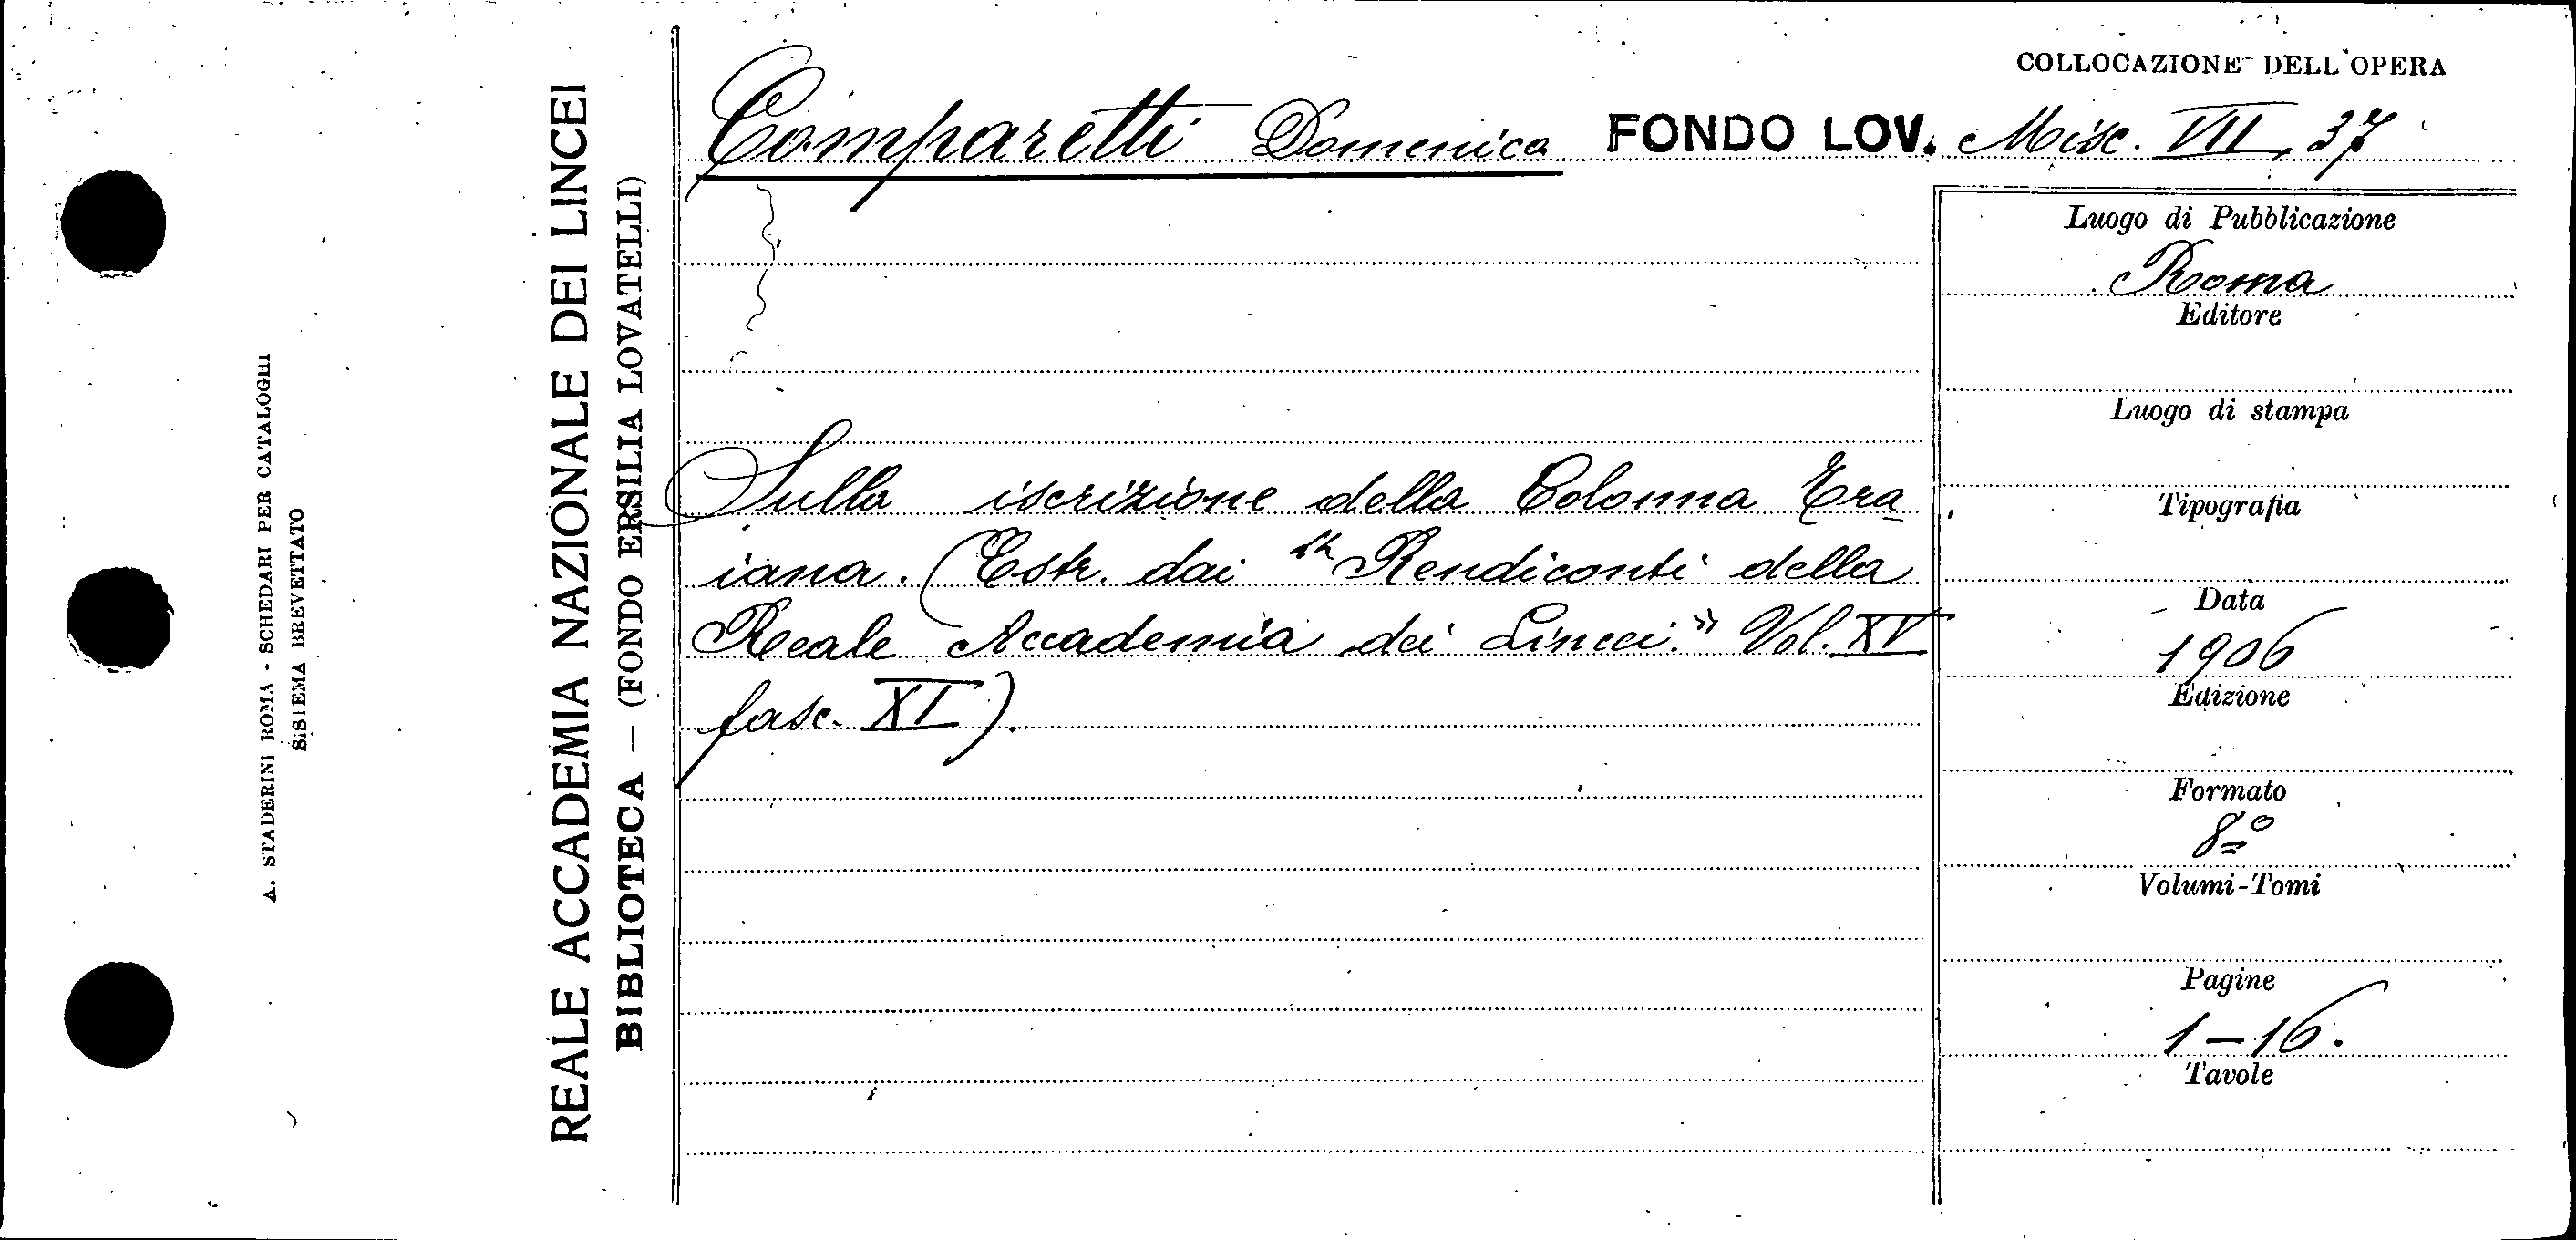 A. STADERINI ROMA - SCHEDARI PER CATALOGHI
SISTEMA BREVETTATO
REALE ACCADEMIA NAZIONALE DEI LINCEI
BIBLIOTECA — (FONDO ERSILIA LOVATELLI)
COLLOCAZIONE DELL'OPERA
Comparetti Domenico FONDO LOV. Misc. VII, 37
Sulla iscrizione della Colonna Tra
iana. (Estr. dai "Rendiconti della
Reale Accademia dei Lincei." Vol. XV
fasc. XI).
Luogo di Pubblicazione
Roma
Editore
Luogo di stampa
Tipografia
Data
1906
Edizione
Formato
8º
Volumi-Tomi
Pagine
1-16.
Tavole